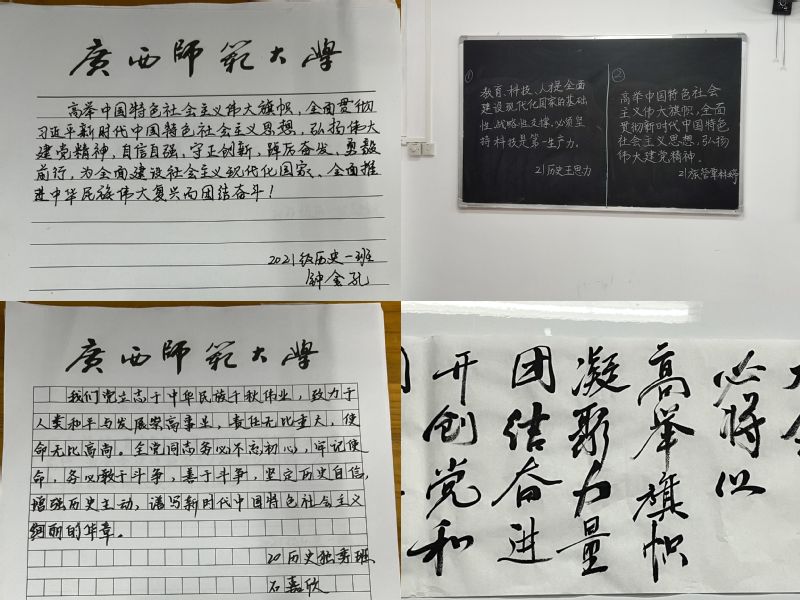 廣西師範大學
高举中国特色社会主义伟大旗帜，全面贯彻
习近平新时代中国特色社会主义思想，弘扬伟大
建党精神，自信自强，守正创新，踔厉奋发、勇毅
前行，为全面建设社会主义现代化国家、全面推
进中华民族伟大复兴而团结奋斗！
2021级历史一班
钟金孔
①
教育、科技、人才是全面
建设现代化国家的基础
性、战略性支撑。必须坚
持科技是第一生产力。
21历史王思力
②
高举中国特色社会
主义伟大旗帜，全面
贯彻新时代中国特色
社会主义思想，弘扬
伟大建党精神。
廣西師範大學
我们党立志于中华民族千秋伟业，致力于
人类和平与发展崇高事业，责任无比重大，使
命无比高尚。全党同志务必不忘初心，牢记使
命，务必敢于斗争，善于斗争，坚定历史自信，
增强历史主动，谱写新时代中国特色社会主义
绚丽的华章。
20历史独秀班
石嘉欣
必将以
高举旗帜
凝聚力量
团结奋进
开创党和